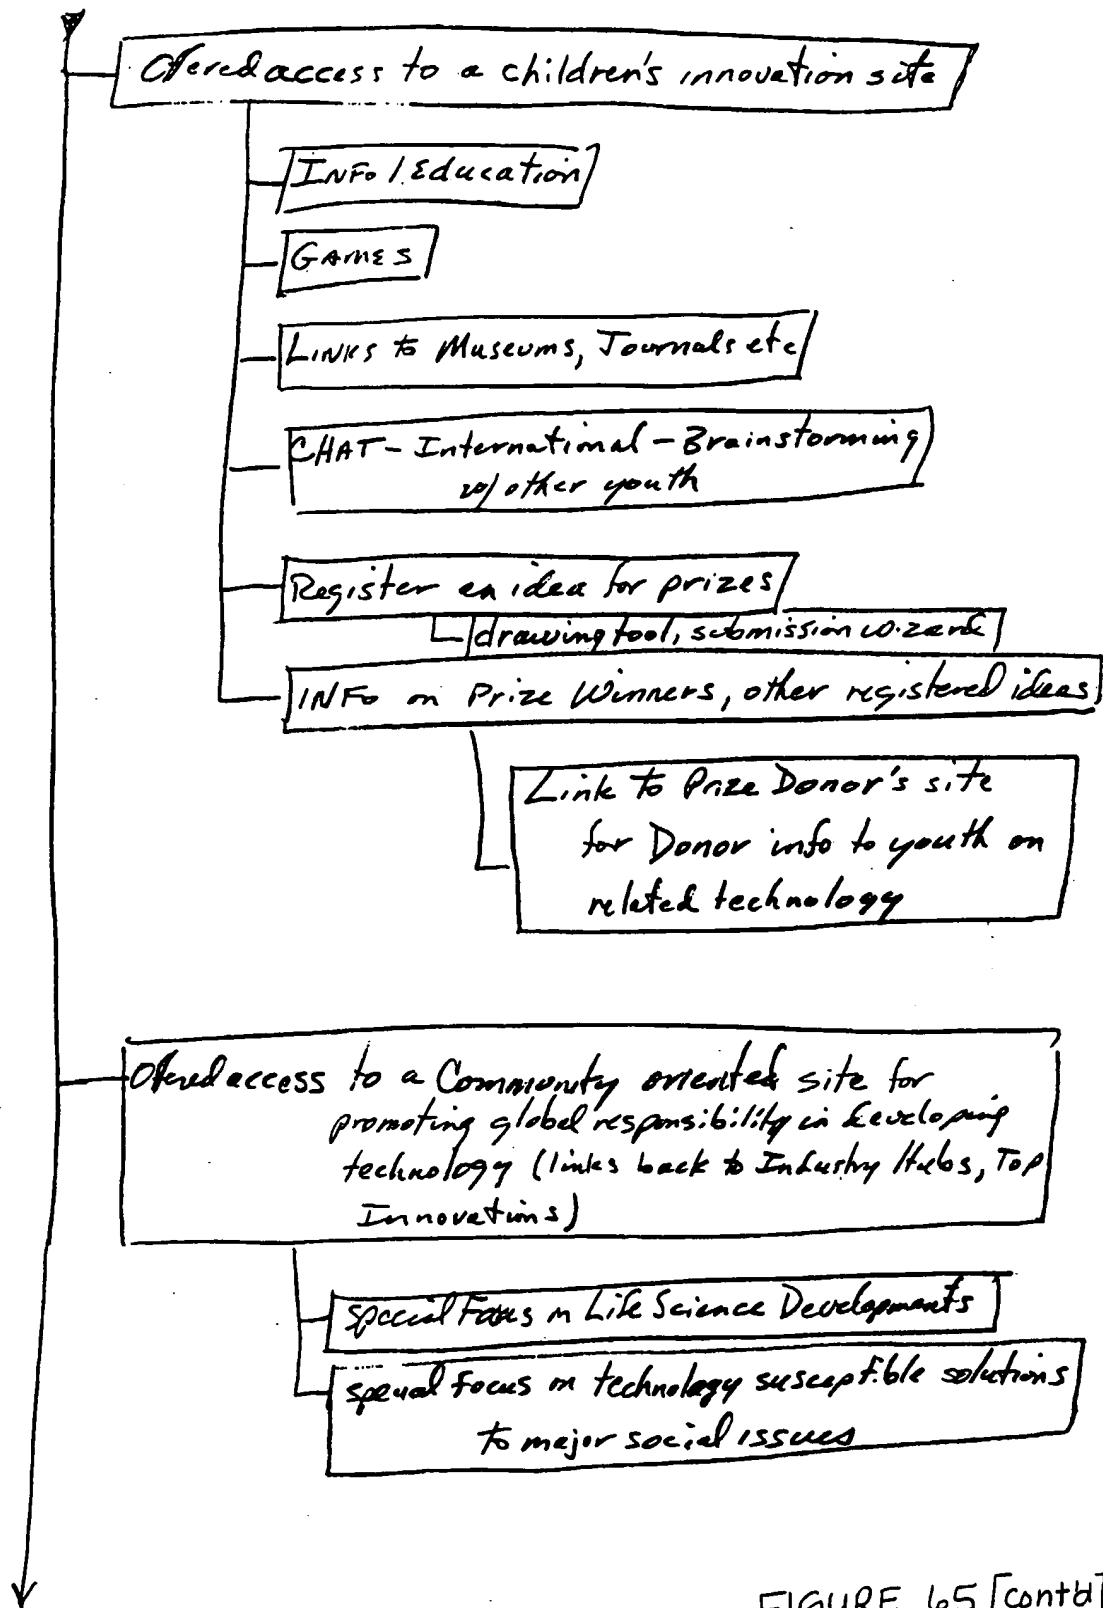 Offered access to a children's innovation site
INFO / Education
GAMES
LINKS to Museums, Journals etc
CHAT - International - Brainstorming
w/ other youth
Register an idea for prizes
drawing tool, submission wizard
INFO on Prize Winners, other registered ideas
Link to Prize Donor's site
for Donor info to youth on
related technology
Offered access to a Community oriented site for
promoting global responsibility in developing
technology (links back to Industry Hubs, Top
Innovations)
special Focus on Life Science Developments
special focus on technology susceptible solutions
to major social issues
FIGURE 65 [cont'd]